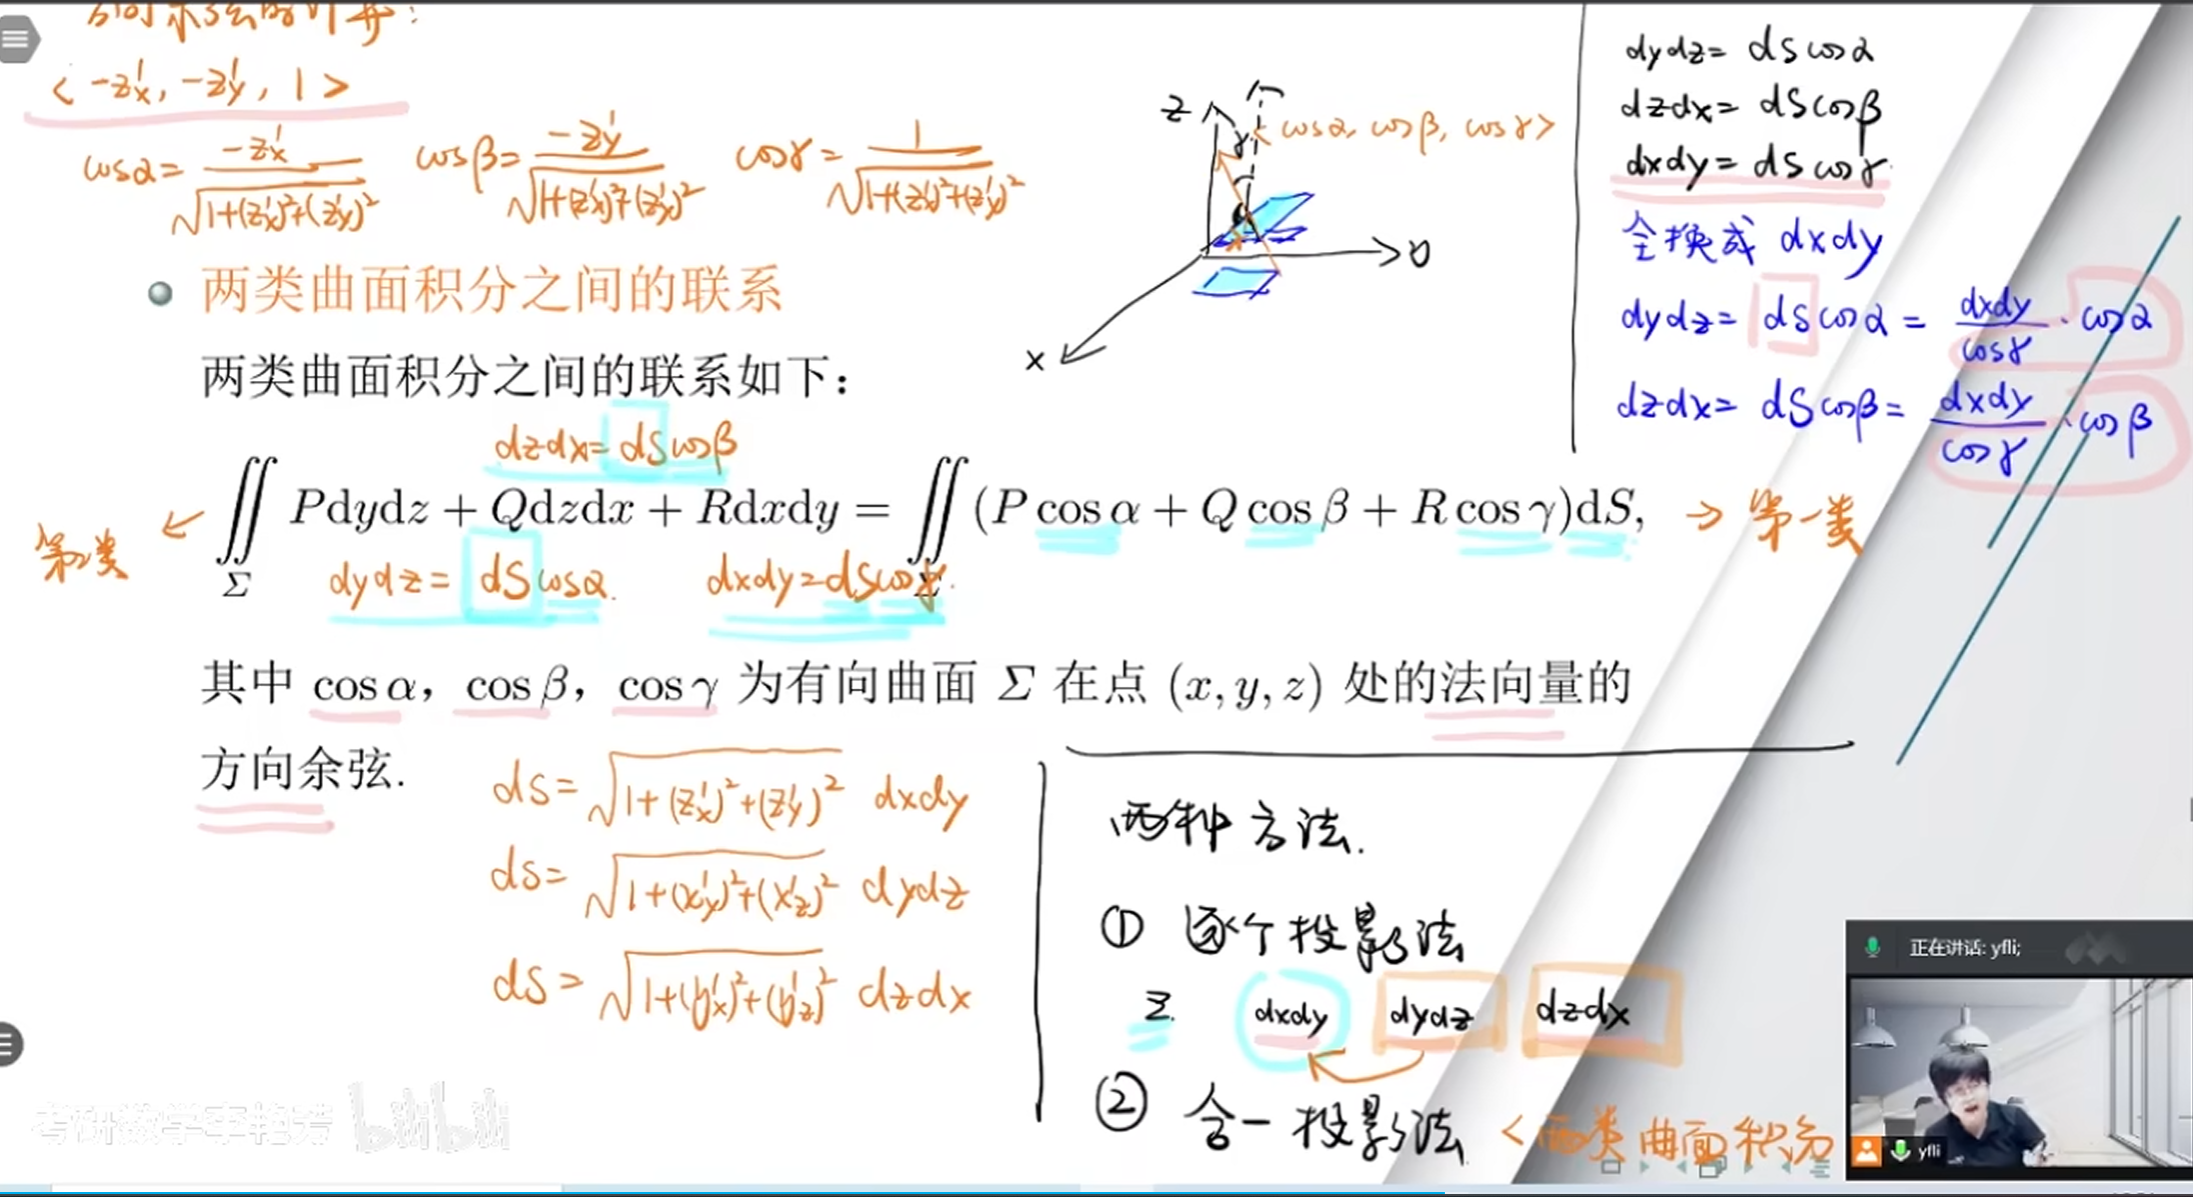 < -z'x, -z'y, 1 >
cosα = -z'x / √(1+(z'x)²+(z'y)²) cosβ = -z'y / √(1+(z'x)²+(z'y)²) cosγ = 1 / √(1+(z'x)²+(z'y)²)
z
γ
< cosα, cosβ, cosγ >
y
x
dydz = dS cosα
dzdx = dS cosβ
dxdy = dS cosγ
全换成 dxdy
dydz = dS cosα = dxdy/cosγ · cosα
dzdx = dS cosβ = dxdy/cosγ · cosβ
两类曲面积分之间的联系
两类曲面积分之间的联系如下：
dzdx = dS cosβ
第二类 ← ∬Σ Pdydz + Qdzdx + Rdxdy = ∬Σ (P cos α + Q cos β + R cos γ)dS, → 第一类
dydz = dS cosα. dxdy = dS cosγ.
其中 cos α，cos β，cos γ 为有向曲面 Σ 在点 (x, y, z) 处的法向量的
方向余弦.
dS = √(1+(z'x)²+(z'y)²) dxdy
dS = √(1+(x'y)²+(x'z)²) dydz
dS = √(1+(y'x)²+(y'z)²) dzdx
两种方法.
① 逐个投影法
Σ. dxdy dydz dzdx
② 合一投影法 < 两类曲面积分
正在讲话: yfli;
yfli
考研数学李艳芳 bilibili